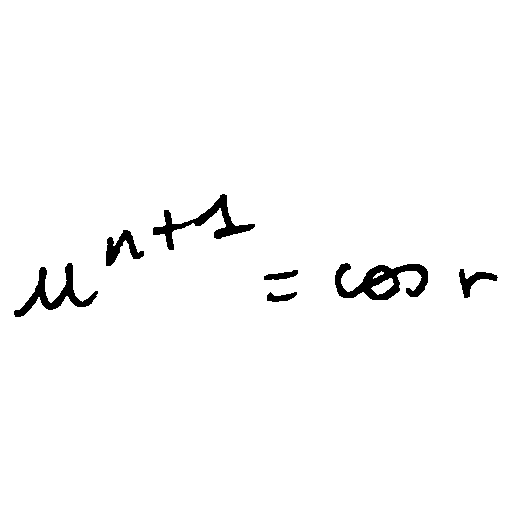 u^{n+1} = cos r